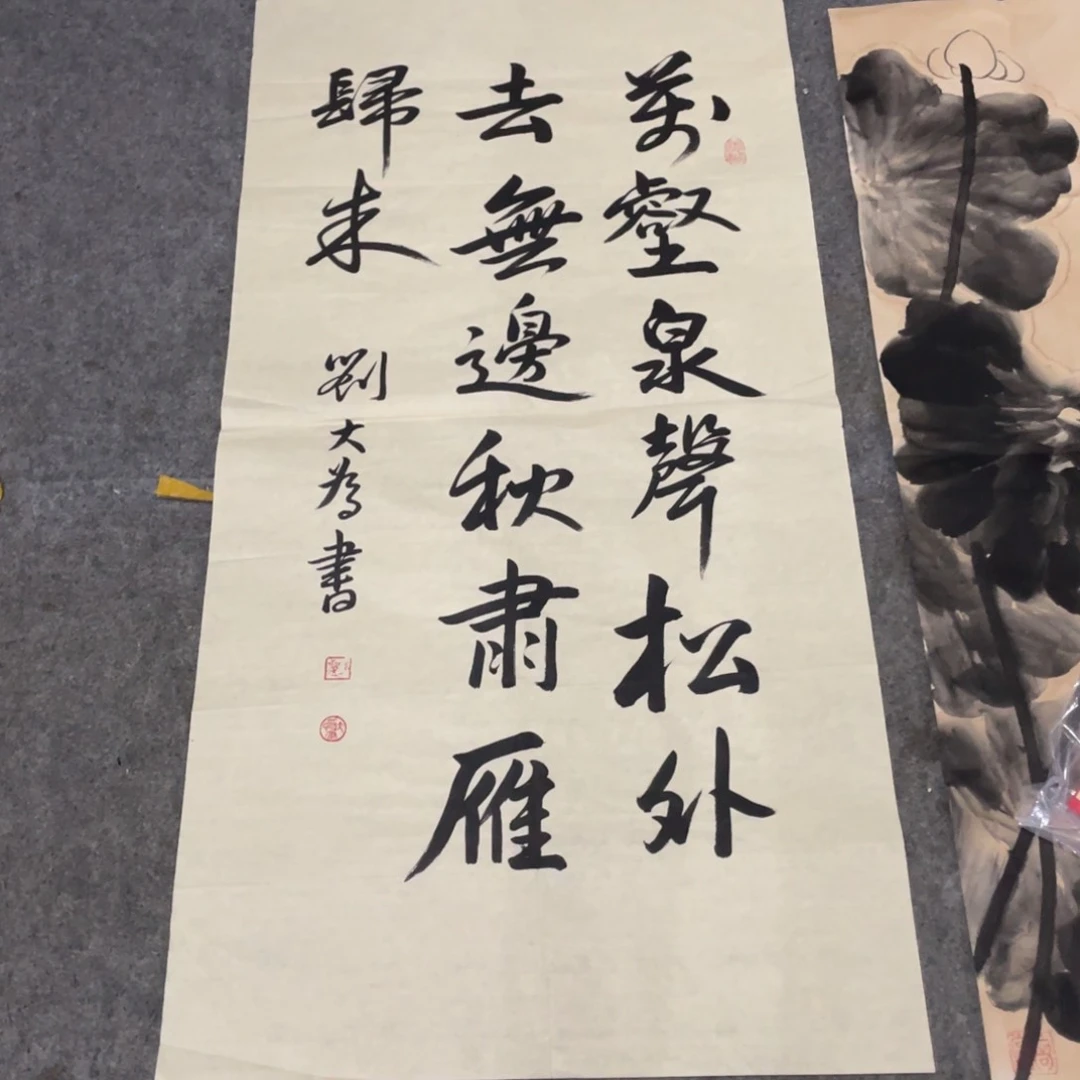 萬壑泉聲松外
去無邊秋肅雁
歸來
劉大為書